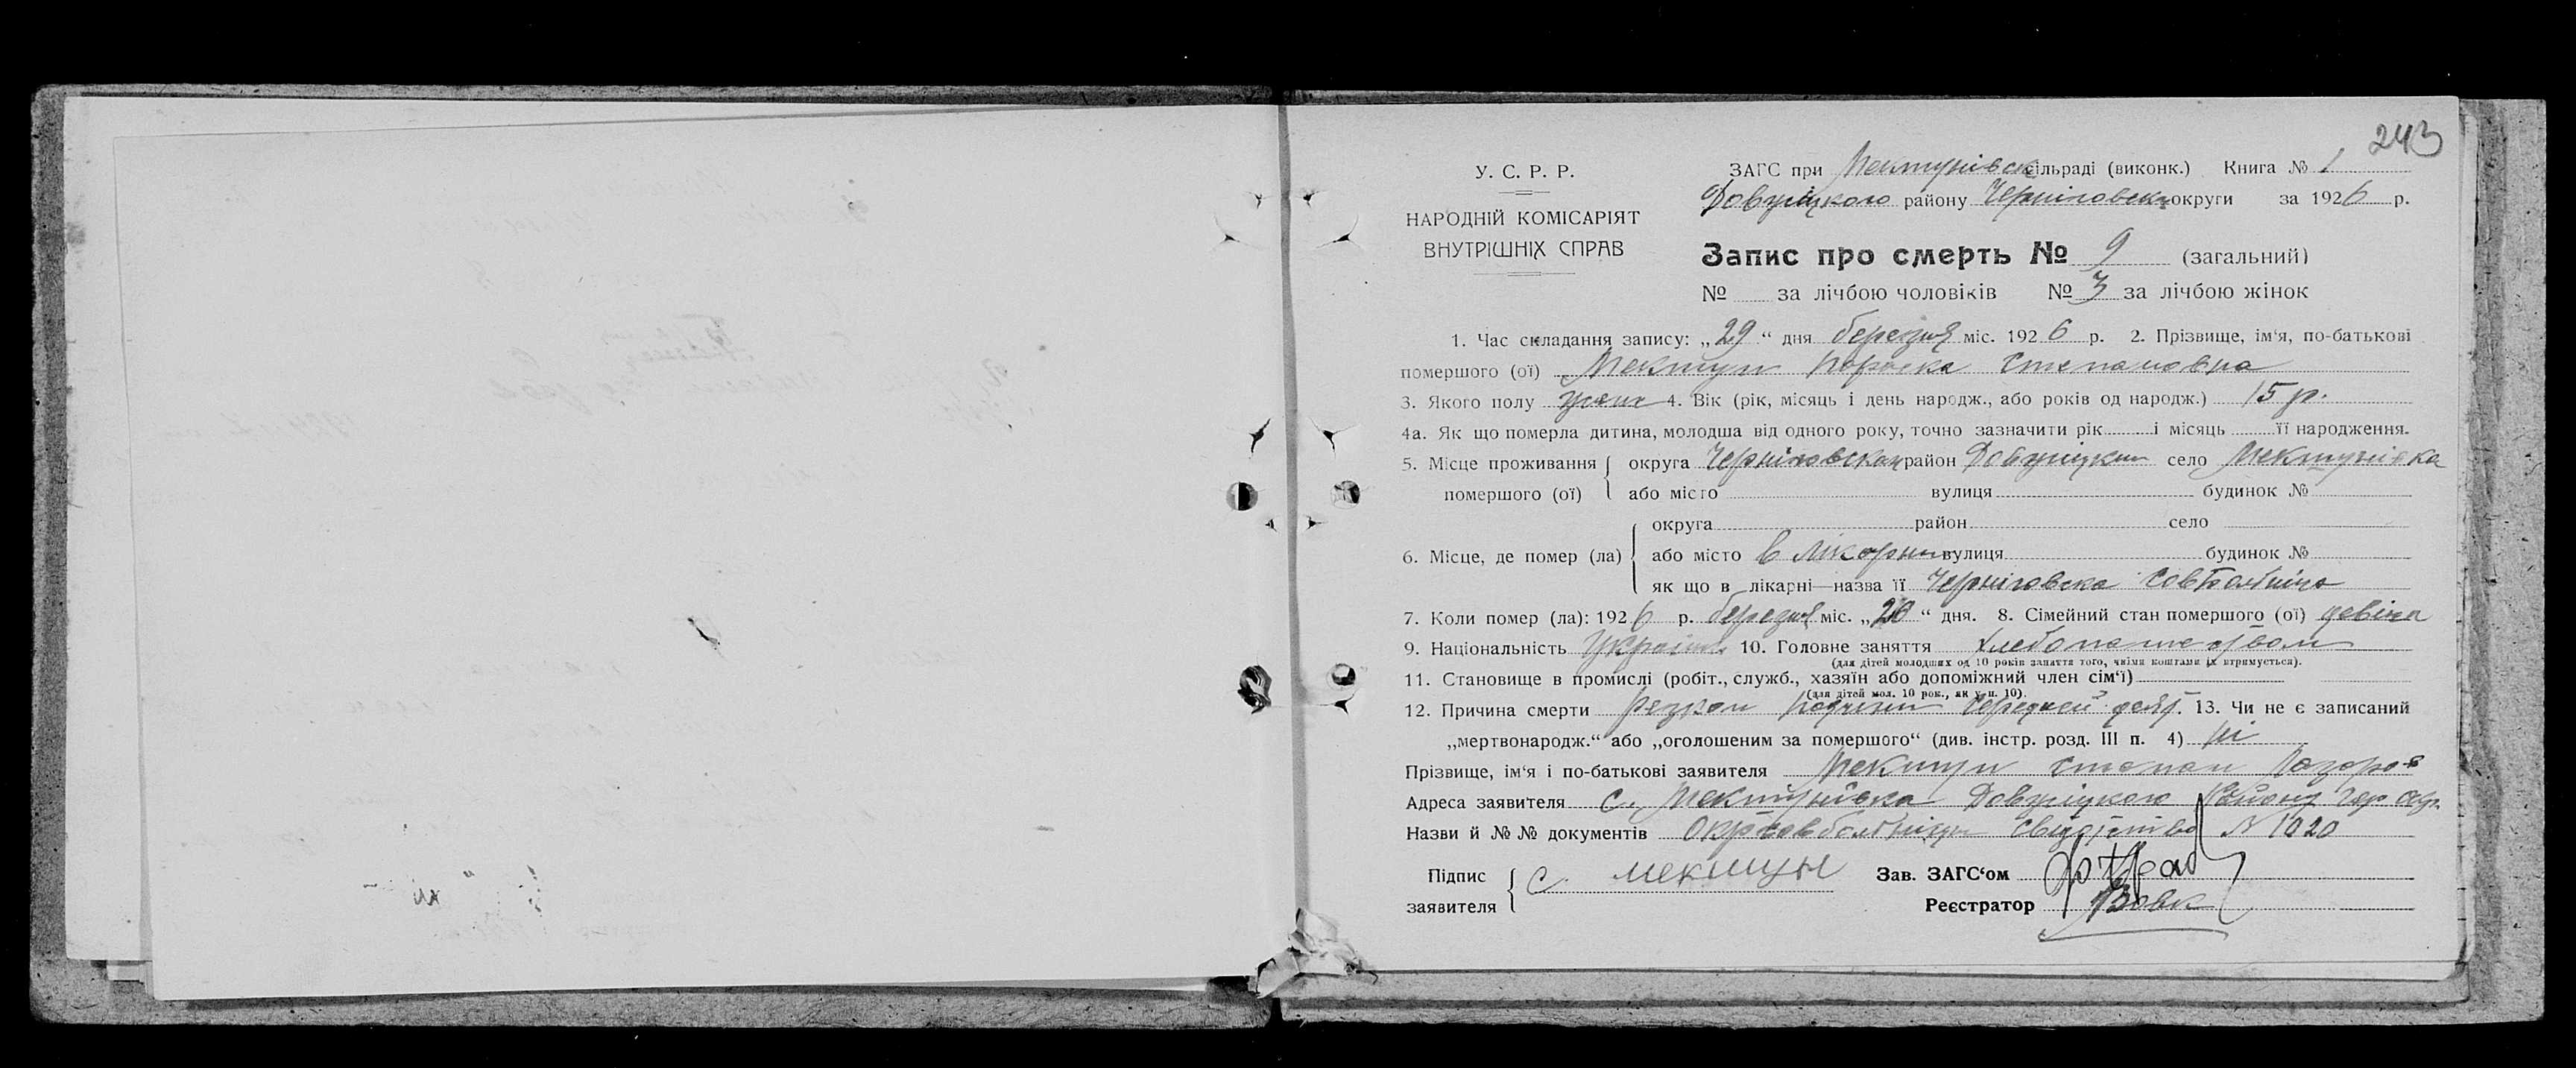 243
У. С. Р. Р.
НАРОДНІЙ КОМІСАРІЯТ
ВНУТРІШНІХ СПРАВ
ЗАГС при Мекшунівск сільраді (виконк.) Книга № 1
Довжицкого району Черніговск округи за 1926 р.
Запис про смерть № 9 (загальний)
№ за лічбою чоловіків № 3 за лічбою жінок
1. Час складання запису: „29“ дня березня міс. 1926 р. 2. Прізвище, ім‘я, по-батькові
помершого (ої) Мекшун Параска Степановна
3. Якого полу жін 4. Вік (рік, місяць і день народж., або років од народж.) 15 р.
4а. Як що померла дитина, молодша від одного року, точно зазначити рік і місяць її народження.
5. Місце проживання помершого (ої) округа Черніговская район Довжицкий село Мекшунівка
або місто вулиця будинок №
6. Місце, де помер (ла) округа район село
або місто в лікарни вулиця будинок №
як що в лікарні—назва її Черніговска Совбольніца
7. Коли помер (ла): 1926 р. березня міс. „20“ дня. 8. Сімейний стан помершого (ої) девіца
9. Національність Україн 10. Головне заняття хлебопашеством
(для дітей молодших од 10 років заняття того, чиїми коштами їх втримується).
11. Становище в промислі (робіт., служб., хазяїн або допоміжний член сім‘ї)
(для дітей мол. 10 рок., як у п. 10).
12. Причина смерти 13. Чи не є записаний
„мертвонародж.“ або „оголошеним за помершого“ (див. інстр. розд. III п. 4) ні
Прізвище, ім‘я і по-батькові заявителя Мекшун Степан Лазаров
Адреса заявителя с. Мекшунівка Довжицкого Району Чер окр.
Назви й №№ документів Окрсовбольніци свідотство № 1020
Підпис заявителя С. Мекшун Зав. ЗАГС‘ом
Реєстратор Вовк